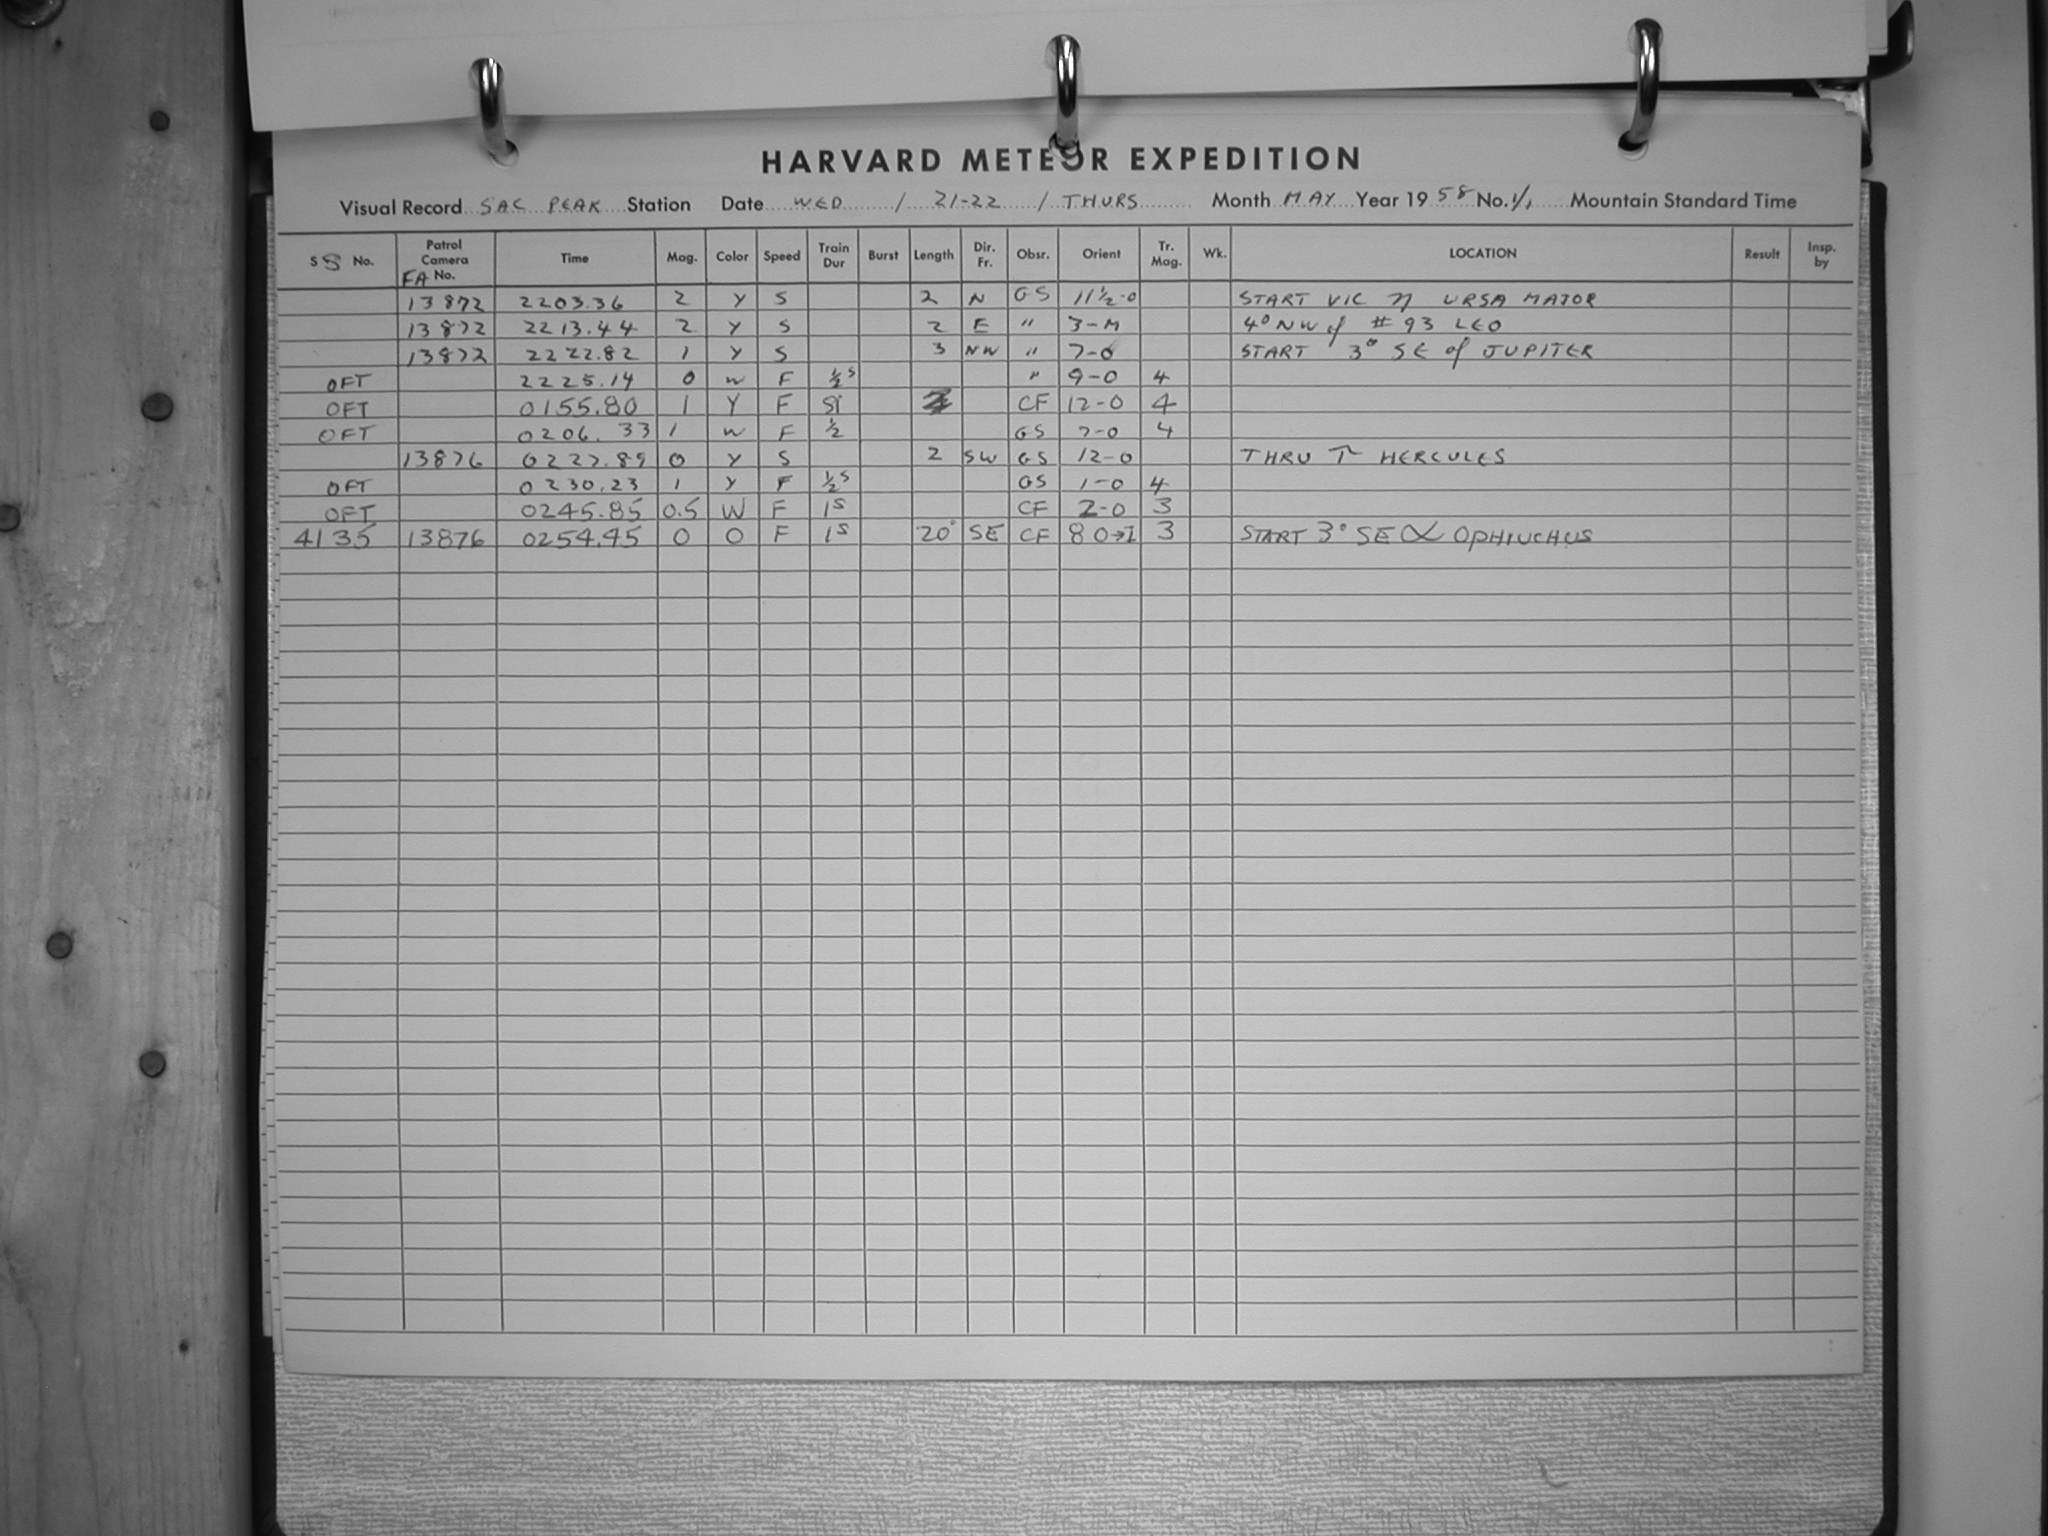 HARVARD METEOR EXPEDITION
Visual Record SAC PEAK Station Date WED / 21-22 / THURS Month MAY Year 1958 No. 1/1 Mountain Standard Time
SS No. Patrol Camera FA No. Time Mag. Color Speed Train Dur Burst Length Dir. Fr. Obsr. Orient Tr. Mag. Wk. LOCATION Result Insp. by
13872 2203.36 2 Y S 2 N GS 11½-0 START VIC η URSA MAJOR
13872 2213.44 2 Y S 2 E " 3-M 4° NW of # 93 LEO
13872 2222.82 1 Y S 3 NW " 7-0 START 3° SE of JUPITER
OFT 2225.14 0 W F ½s " 9-0 4
OFT 0155.80 1 Y F CF 12-0 4
OFT 0206.33 1 W F ½ GS 7-0 4
13876 0227.89 0 Y S 2 SW GS 12-0 THRU HERCULES
OFT 0230.23 1 Y F ½s GS 1-0 4
OFT 0245.85 0.5 W F 1s CF 2-0 3
4135 13876 0254.45 0 O F 1s 20° SE CF 8 O→I 3 START 3° SE α OPHIUCHUS